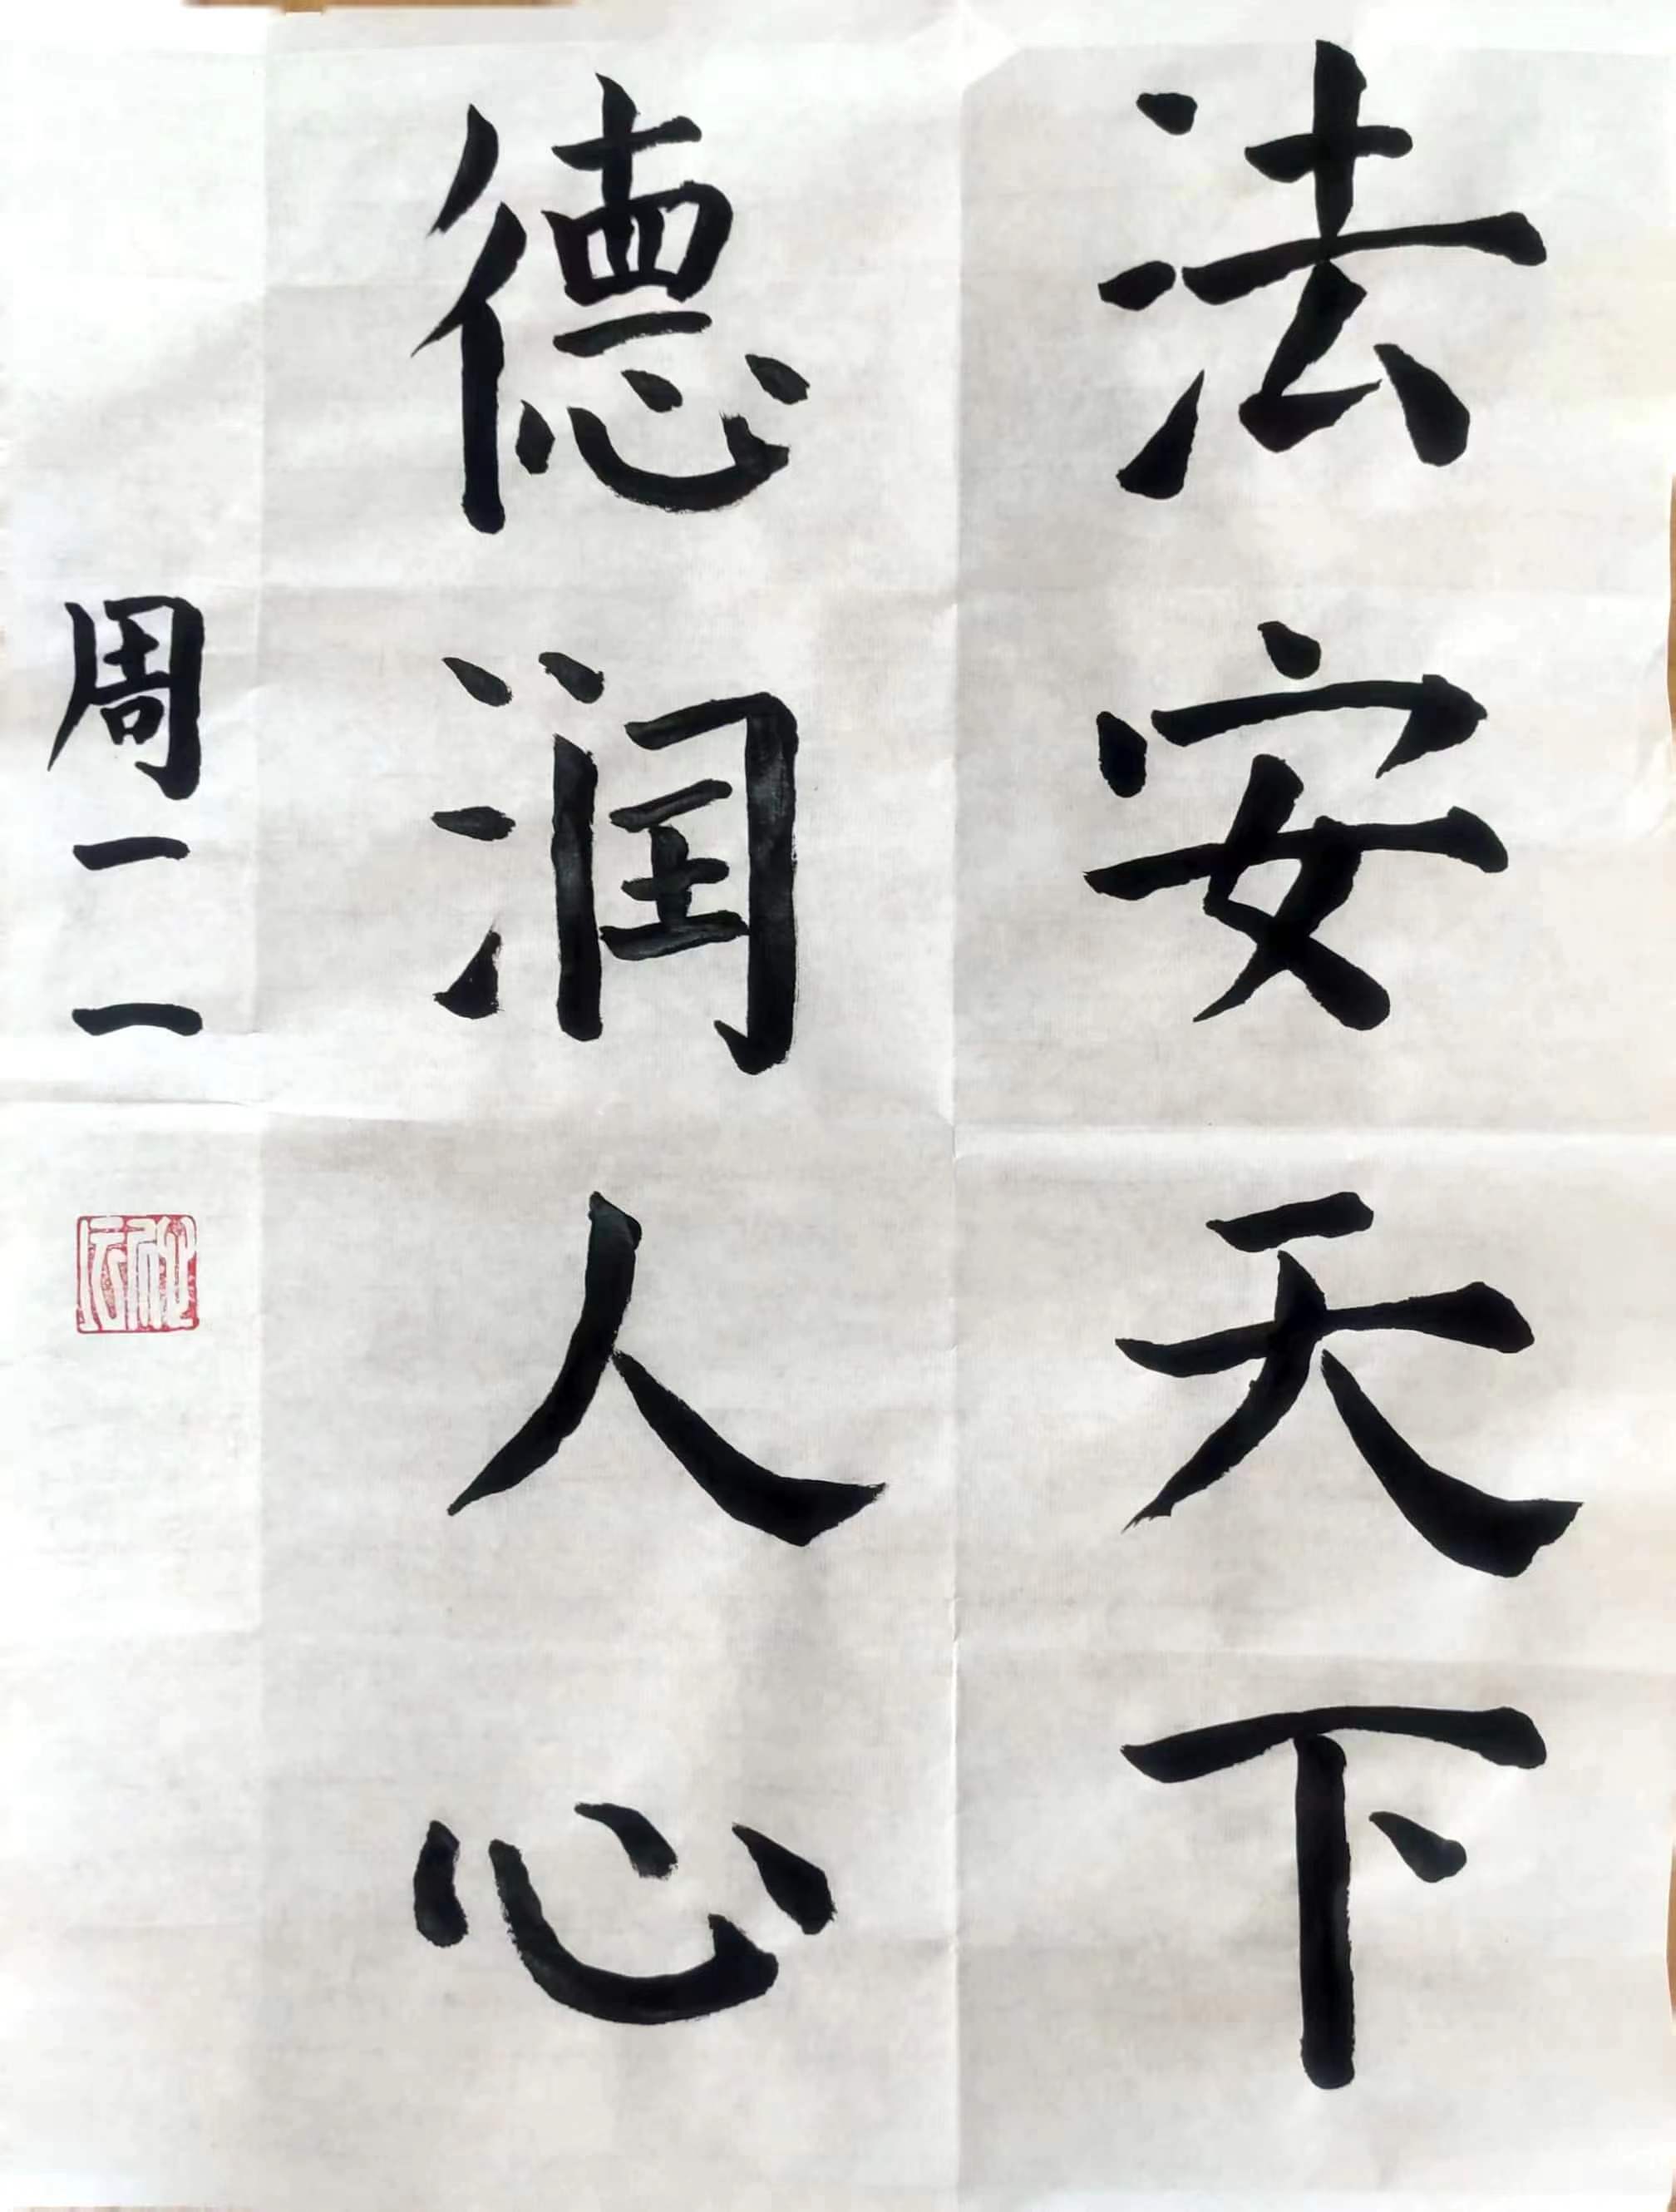 法安天下
德润人心
周一一